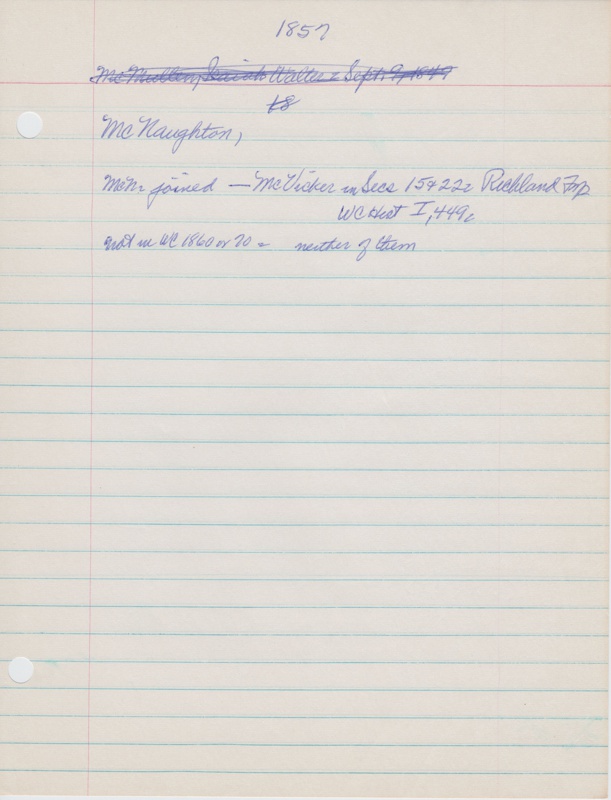 1857
McMullen, Isaiah Walter Sept. 9, 1849
18
McNaughton,
McN. joined — McVicker in Secs 15 & 22 Richland Twp
WC Hist I, 449
not in WC 1860 or 70 - neither of them